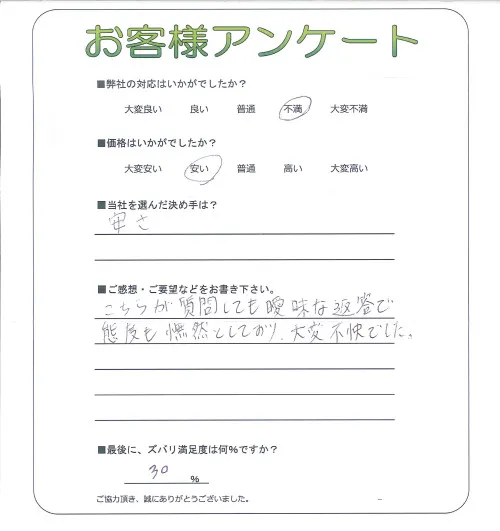 お客様アンケート
■弊社の対応はいかがでしたか？
大変良い 良い 普通 不満 大変不満
■価格はいかがでしたか？
大変安い 安い 普通 高い 大変高い
■当社を選んだ決め手は？
安さ
■ご感想・ご要望などをお書き下さい。
こちらが質問しても曖昧な返答で
態度も憮然としており、大変不快でした。
■最後に、ズバリ満足度は何%ですか？
30 %
ご協力頂き、誠にありがとうございました。